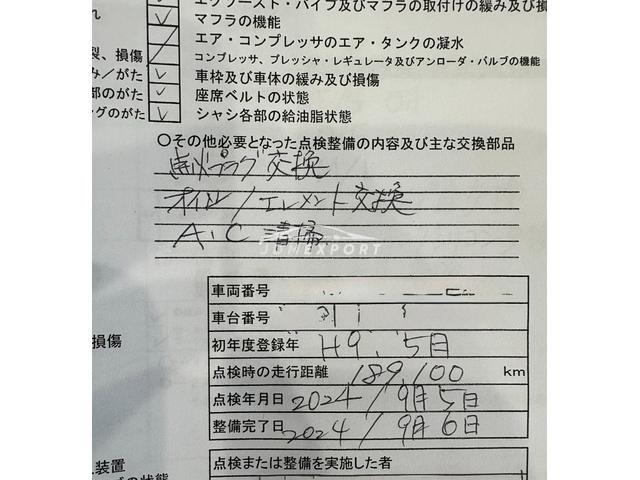 エグゾースト・パイプ及びマフラの取付けの緩み及び損
れ マフラの機能
エア・コンプレッサのエア・タンクの凝水
裂、損傷 コンプレッサ、プレッシャ・レギュレータ及びアンローダ・バルブの機能
み／がた 車枠及び車体の緩み及び損傷
部のがた 座席ベルトの状態
ングのがた シャシ各部の給油脂状態
○その他必要となった点検整備の内容及び主な交換部品
点火プラグ交換
オイル/エレメント交換
A.C 清掃
JDMEXPORT
車両番号
車台番号
損傷 初年度登録年 H9. 5月
点検時の走行距離 189,100 km
点検年月日 2024/9月5日
整備完了日 2024/9月6日
装置 点検または整備を実施した者
の状態